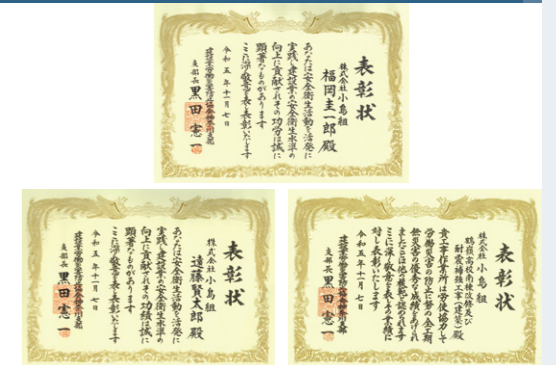 表彰状
株式会社小島組
福岡圭一郎 殿
あなたは安全衛生活動を活発に
実践し建設業の安全衛生水準の
向上に貢献されその功労は誠に
顕著なものがあります
ここに深く敬意を表し表彰いたします
令和五年十一月七日
建設業労働災害防止協会神奈川支部
支部長 黒田憲一
表彰状
株式会社小島組
遠藤賢太郎 殿
あなたは安全衛生活動を活発に
実践し建設業の安全衛生水準の
向上に貢献されその功績は誠に
顕著なものがあります
ここに深く敬意を表し表彰いたします
令和五年十一月七日
建設業労働災害防止協会神奈川支部
支部長 黒田憲一
表彰状
株式会社小島組
鶴嶺高校南棟改修及び
耐震補強工事(建築) 殿
貴工事作業所は労使協力して
労働災害の防止に努め全工期
無災害の優秀な成績をあげられ
ましたことは他の模範と認められます
ここに深く敬意を表しその業績に
対し表彰いたします
令和五年十一月七日
建設業労働災害防止協会神奈川支部
支部長 黒田憲一